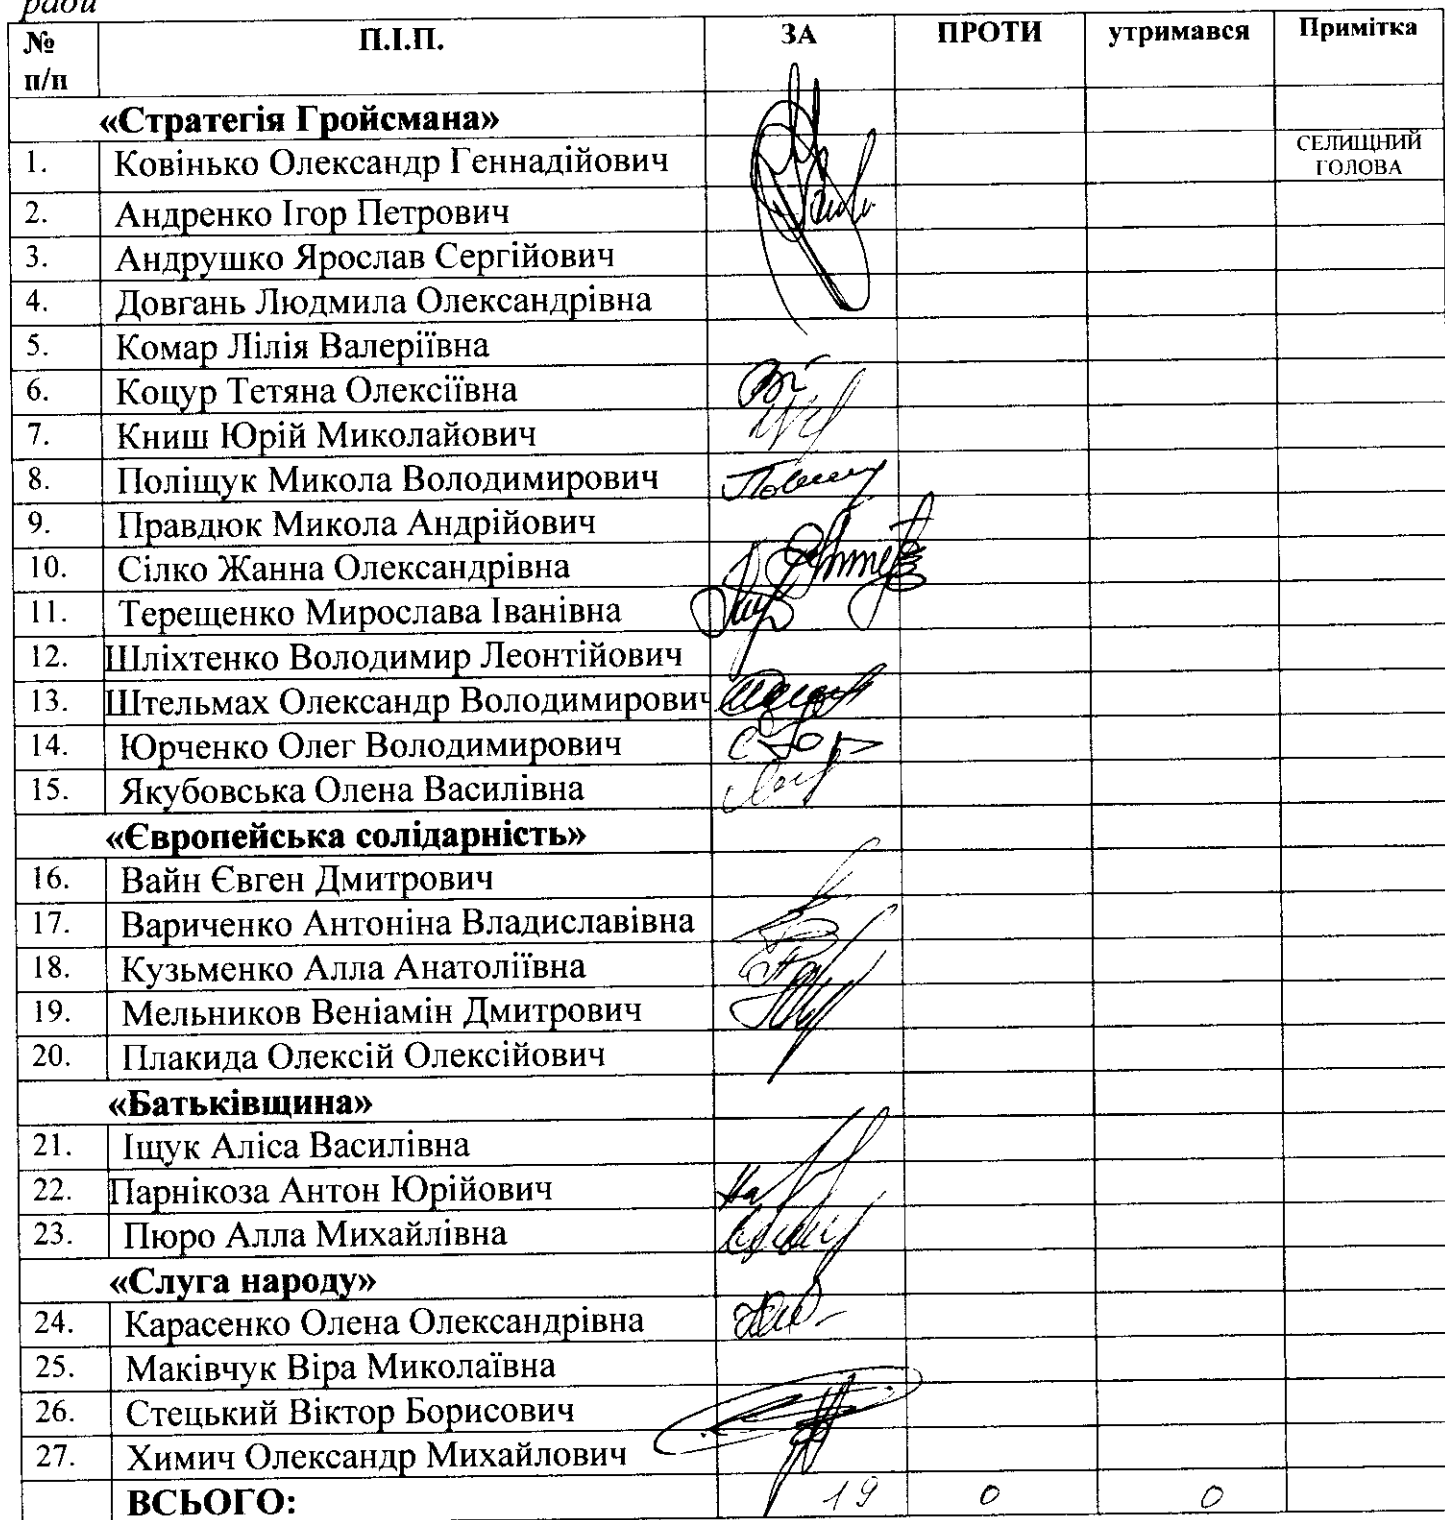 ради
№ п/п П.І.П. ЗА ПРОТИ утримався Примітка
«Стратегія Гройсмана»
1. Ковінько Олександр Геннадійович СЕЛИЩНИЙ ГОЛОВА
2. Андренко Ігор Петрович
3. Андрушко Ярослав Сергійович
4. Довгань Людмила Олександрівна
5. Комар Лілія Валеріївна
6. Коцур Тетяна Олексіївна
7. Книш Юрій Миколайович
8. Поліщук Микола Володимирович
9. Правдюк Микола Андрійович
10. Сілко Жанна Олександрівна
11. Терещенко Мирослава Іванівна
12. Шліхтенко Володимир Леонтійович
13. Штельмах Олександр Володимирович
14. Юрченко Олег Володимирович
15. Якубовська Олена Василівна
«Європейська солідарність»
16. Вайн Євген Дмитрович
17. Вариченко Антоніна Владиславівна
18. Кузьменко Алла Анатоліївна
19. Мельников Веніамін Дмитрович
20. Плакида Олексій Олексійович
«Батьківщина»
21. Іщук Аліса Василівна
22. Парнікоза Антон Юрійович
23. Пюро Алла Михайлівна
«Слуга народу»
24. Карасенко Олена Олександрівна
25. Маківчук Віра Миколаївна
26. Стецький Віктор Борисович
27. Химич Олександр Михайлович
ВСЬОГО: 19 0 0